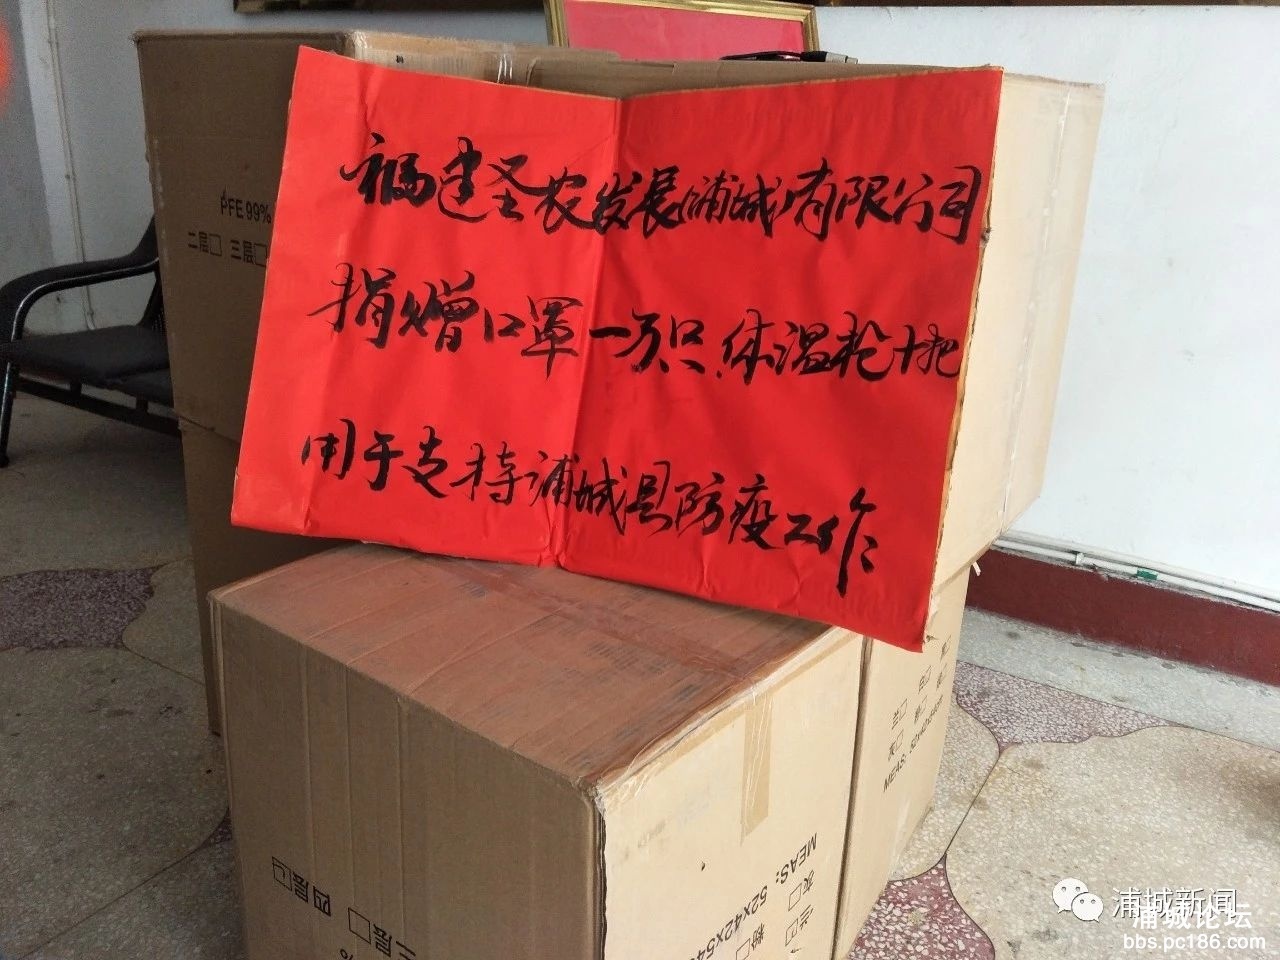 福建圣农发展(浦城)有限公司
捐赠口罩一万只.体温枪十把
用于支持浦城县防疫工作
PFE 99%
二层□ 三层□
四层□
二层□
%
MEAS: 52x42x54
灰□ 兰□
粉□
兰□ 白□
灰□ 粉□
MEAS: 52x42x54
浦城新闻
浦城论坛
bbs.pc186.com